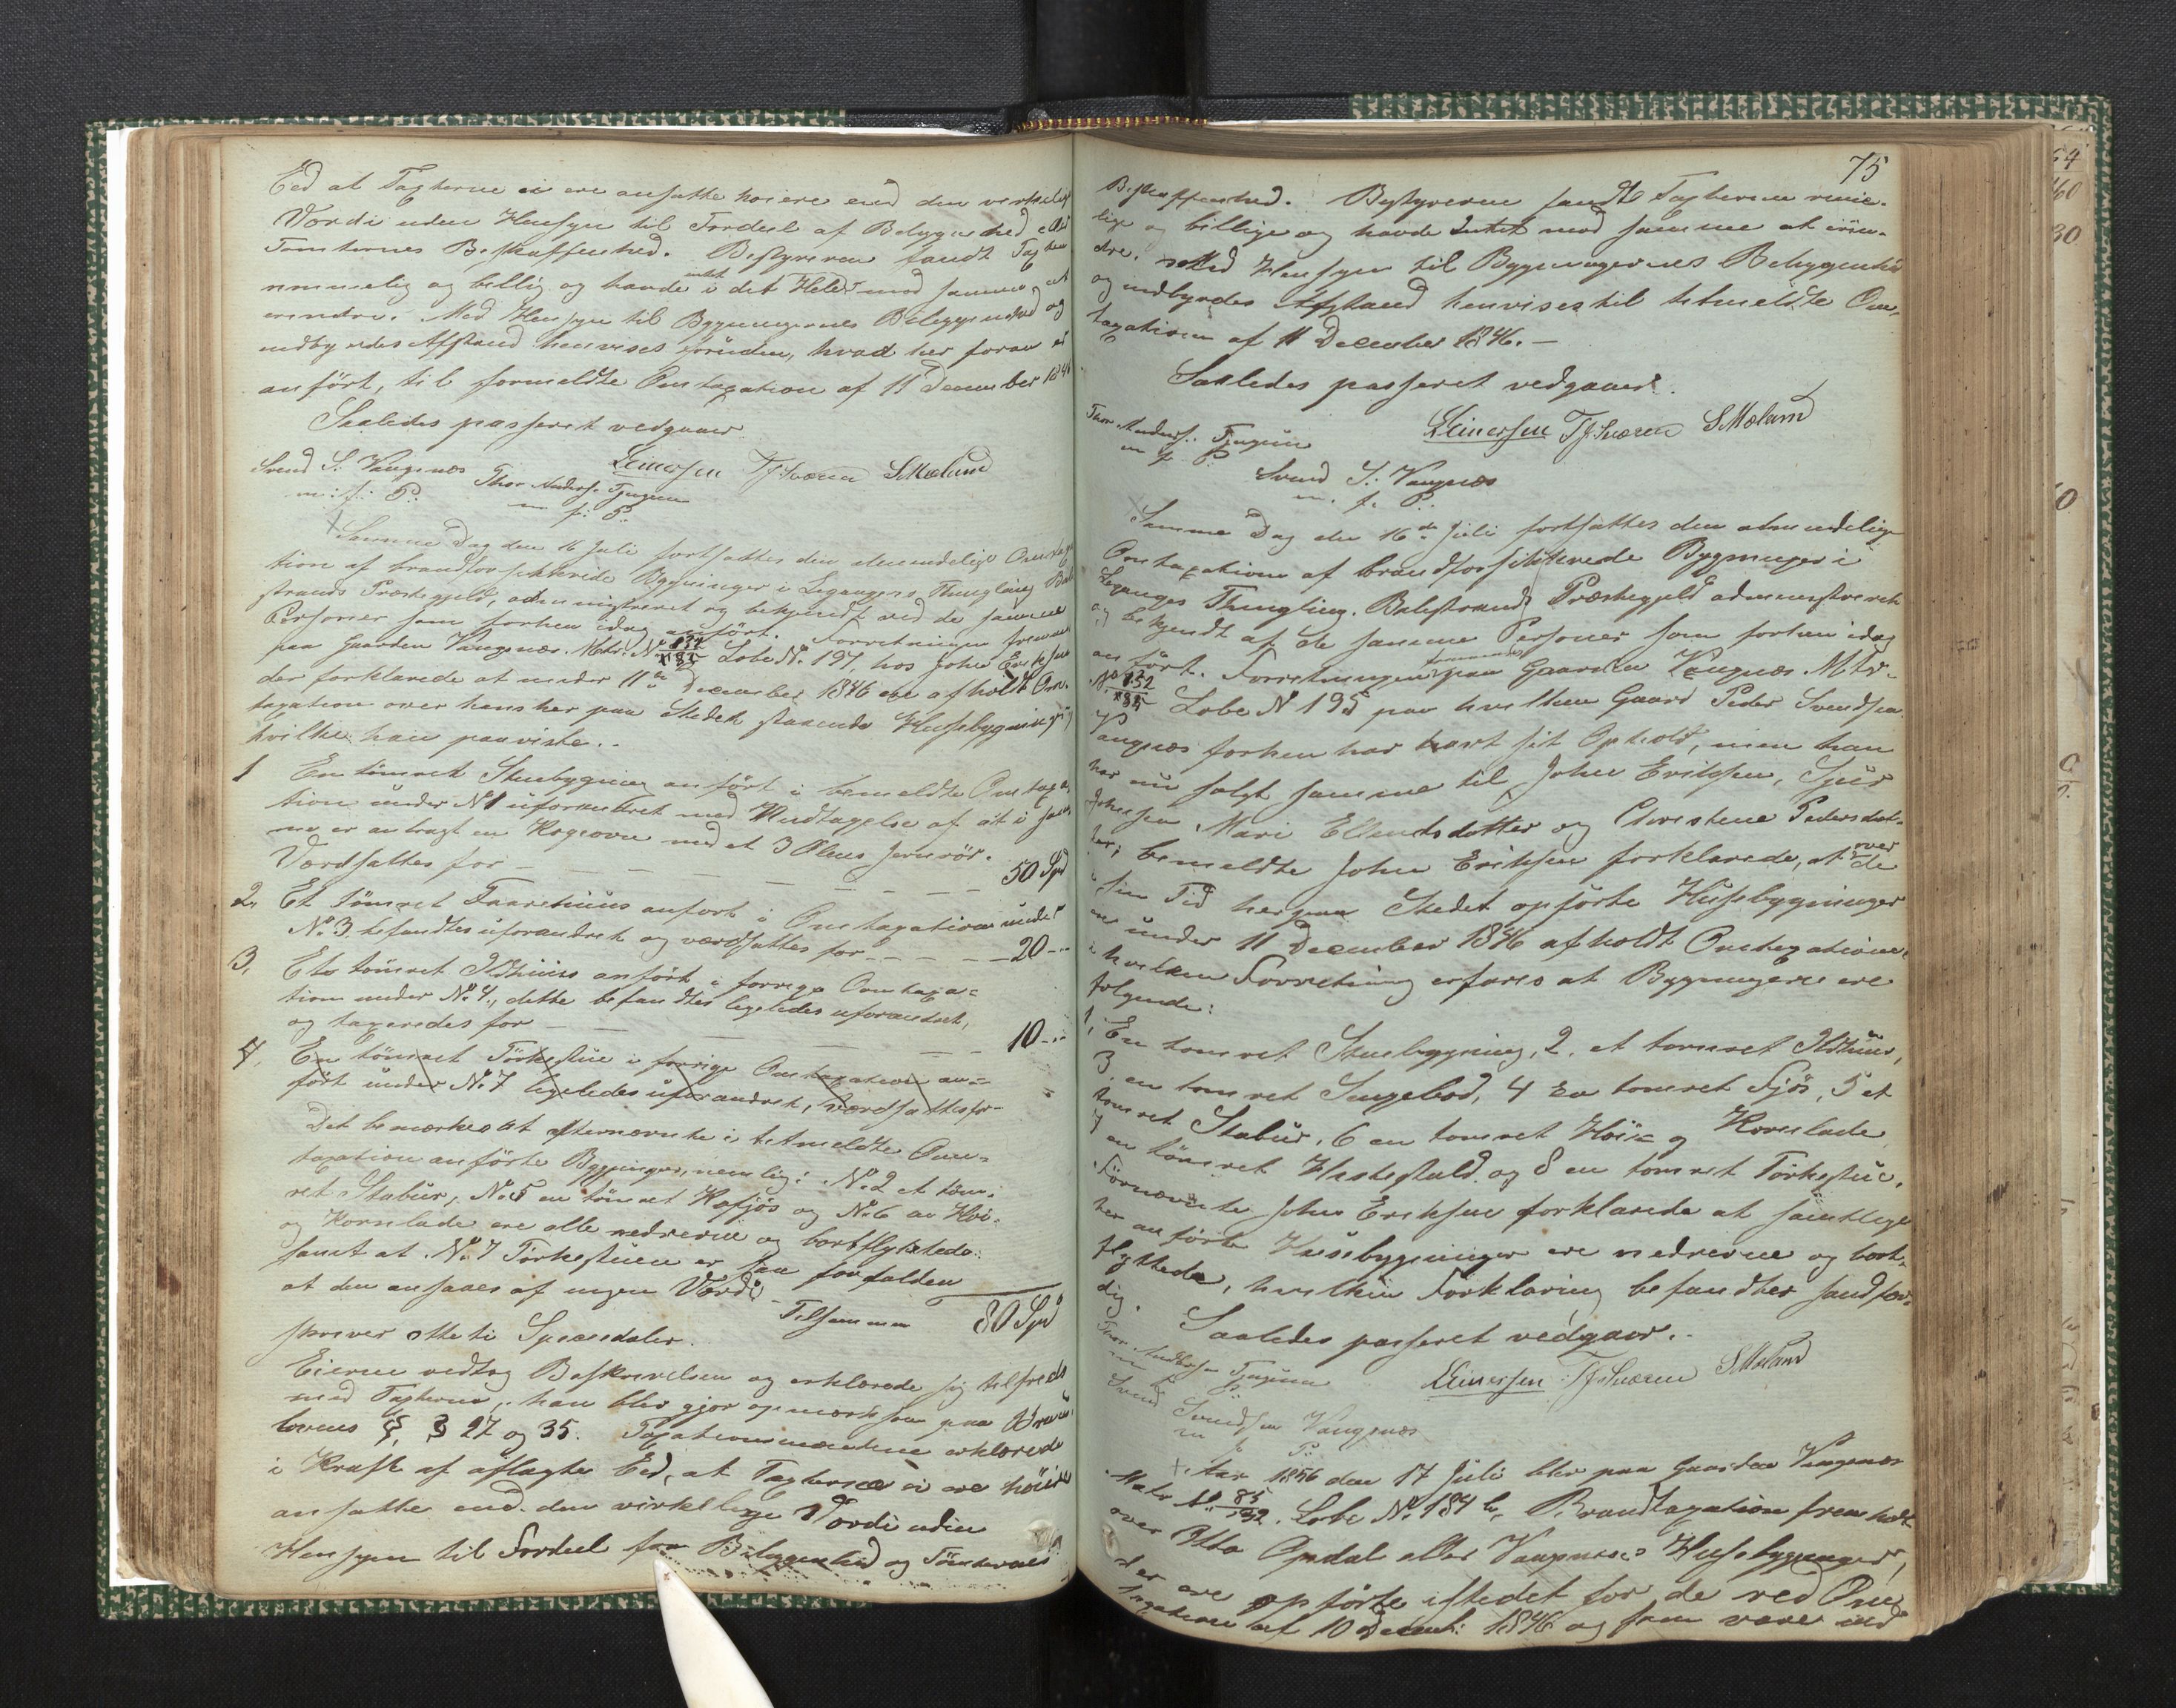 Eed at Taxterne ei ere ansatte høiere end den virkelige
Værdi uden Hensyn til Fordeel af Beliggenhed eller
Tomternes Beskaffenhed. Bestyreren fandt Taxten
rimmelig og billig og havde intet i det Hele mod samme at
erindre. Med Hensyn til Bygningernes Beliggenhed og
indbyrdes Afstand henvises foruden, hvad her foran er
anført, til formeldte Omtaxation af 11 December 1846
Saaledes passeret vedgaaer.
Svend S. Vangsnæs Thor Anders. Tjugum Leinersen Sværen S Mæland
m: f: P: m f: P:
Samme Dag den 16 Juli fortsattes den almindelige Omtaxa
tion af brandforsikkrede Bygninger i Leganger Thinglag Bale
strands Præstegjeld, administreret og betjendt ved de samme
Personer som forhen idag anført. Forretningen fremme
paa Gaarden Vangsnæs. Matr. N Løbe N. 194, hos John Eriksen
der forklarede at under 11te December 1846 ere afholdt Om-
taxation over hans her paa Stedet staaende Husebygninger,
hvilke han paaviste..
1 En tømret Stuebygning anført i bemeldte Omtaxa
tion under N 1 uforandret med Undtagelse af at i sam
me er anbragt en Kogeovn med et 3 Alens Jernrør.
Værdsattes for 50 Spd
2, Et tømret Faarehuus anført i Omtaxationen under
No 3. befandtes uforandret og værdsattes for 20
3, Et tømret Ildhuus anført i forrige Omtaxa=
tion under No 4., dette befandtes ligeledes uforandret,
og taxeredes for 10
4. En tømret Tørkestue i forrige Omtaxation an=
ført under No. 7 ligeledes uforandret, værdsattes for
Det bemærkes at efternævnte i bemeldte Om=
taxation anførte Bygninger, nemlig: No. 2 et tøm-
ret Stabur, No. 5 en tømret Kofjøs og No. 6 en Høi-
og Kornlade ere alle nedrevne og bortflyttede
samt at No. 7 Tørkestuen er saa forfalden
at den ansaaes af ingen Værdi
Tilsammen 80 Spd
skriver otteti Speciedaler.
Eieren vedtog Beskrivelsen og erklærede sig tilfreds
med Taxterne, han blev gjort opmærksom paa Brand
lovens §, § 27 og 35. Taxationsmændene erklærede
i Kraft af aflagte Eed, at Taxterne ei ere høiere
ansatte end den virkellige Værdi uden
Hensyn til Fordeel for Beliggenhed og Tomternes
75
Beskaffenhed. Bestyreren fandt Taxterne rime-
lige og billige og havde Intet mod samme at erin-
dre. Med Hensyn til Bygningernes Beliggenhed
og indbyrdes Afstand henvises til bemeldte Om-
taxation af 11 December 1846.
Saaledes passeret vedgaaer.
Thor Anders. Tjugum Leinersen Sværen S Mæland
m f. P:
Svend S. Vangsnæs
m. f. P.
Samme Dag den 16de Juli fortsattes den almindelige
Omtaxation af brandforsikkrede Bygninger i
Leganger Thinglag. Balestrands Præstegjeld administreret
og betjendt af de samme Personer som forhen idag
anført. Forretningen paa Gaarden Vangsnæs. Matr-
N Løbe N 195 paa hvilken Gaard Peder Svendsen
Vangsnæs forhen har havt sit Ophold, men han
har nu solgt samme til John Eriksen, Sjur
Johnsen Mari Ellendsdatter og Christine Pedersdat-
ter; bemeldte John Eriksen forklarede, at over de
i sin Tid her paa Stedet opførte Husebygninger
er under 11 December 1846 afholdt Omtaxation,
i hvilken Forretning erfares at Bygningerne ere
følgende:
1, En tømret Stuebygning, 2, et tømret Ildhuus,
3 en tømret Sengebod, 4 en tømret Fjøs, 5 et
tømret Stabur, 6 en tømret Høie og Kornlade
7 en tømret Hestestald og 8 en tømret Tørkestue.
Førnævnte John Eriksen forklarede at samtlige
her anførte Husebygninger ere nedrevne og bort-
flyttede, hvilken Forklaring befandtes sandfær-
dig.
Saaledes passeret vedgaaer.
Thor Andersen Tjugum Leinersen Sværen S Mæland
m f P
Svend Svendsen Vangsnæs
m f P.
Aar 1856 den 17 Juli blev paa Gaarden Vangsnæs
Matr N. 85/132, Løbe No. 184 b, Brandtaxation fremholdt
over Otto Opdal eller Vangsnæs Husebygninger,
der ere opførte istedet for de ved Om-
taxationen af 10 Decemb: 1846 og som vare ind